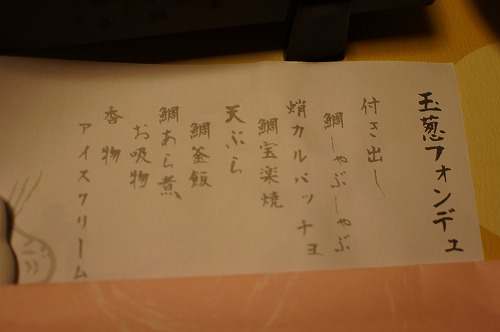 玉葱フォンデュ
付き出し
鯛しゃぶしゃぶ
蛸カルパッチョ
鯛宝楽焼
天ぷら
鯛釜飯
鯛あら煮
お吸物
香物
アイスクリーム